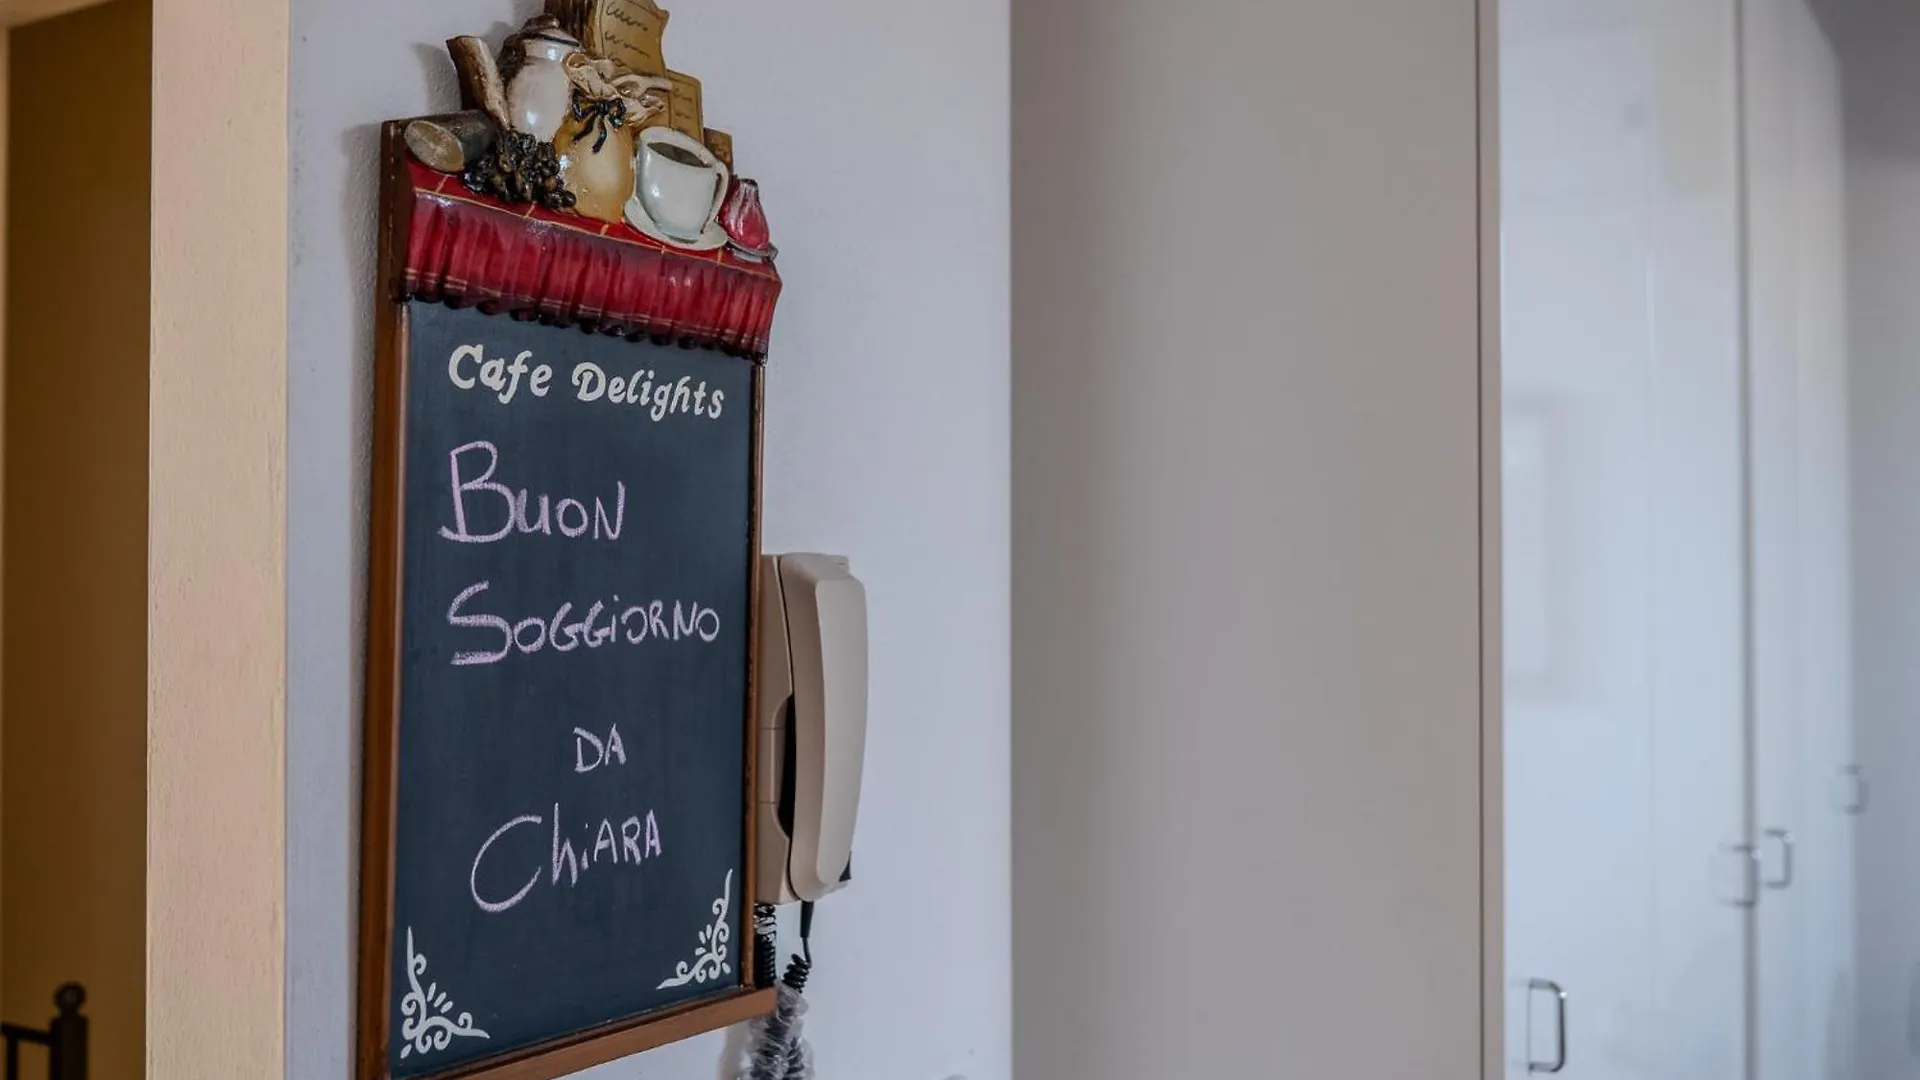 Cafe Delights
BUON
SOGGiORNO
DA
ChiARA